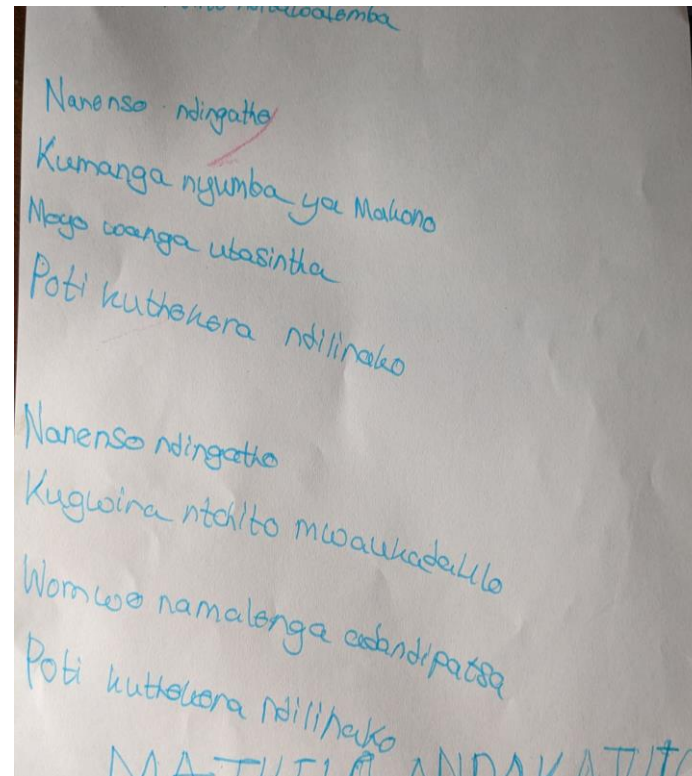 Nanenso ndingathe
Kumanga nyumba ya Makono
Moyo wanga utasintha
Poti kuthekera ndilinako
Nanenso ndingathe
Kugwira ntchito mwaukadaulo
Womwe namalenga adandipatsa
Poti kuthekera ndilinako